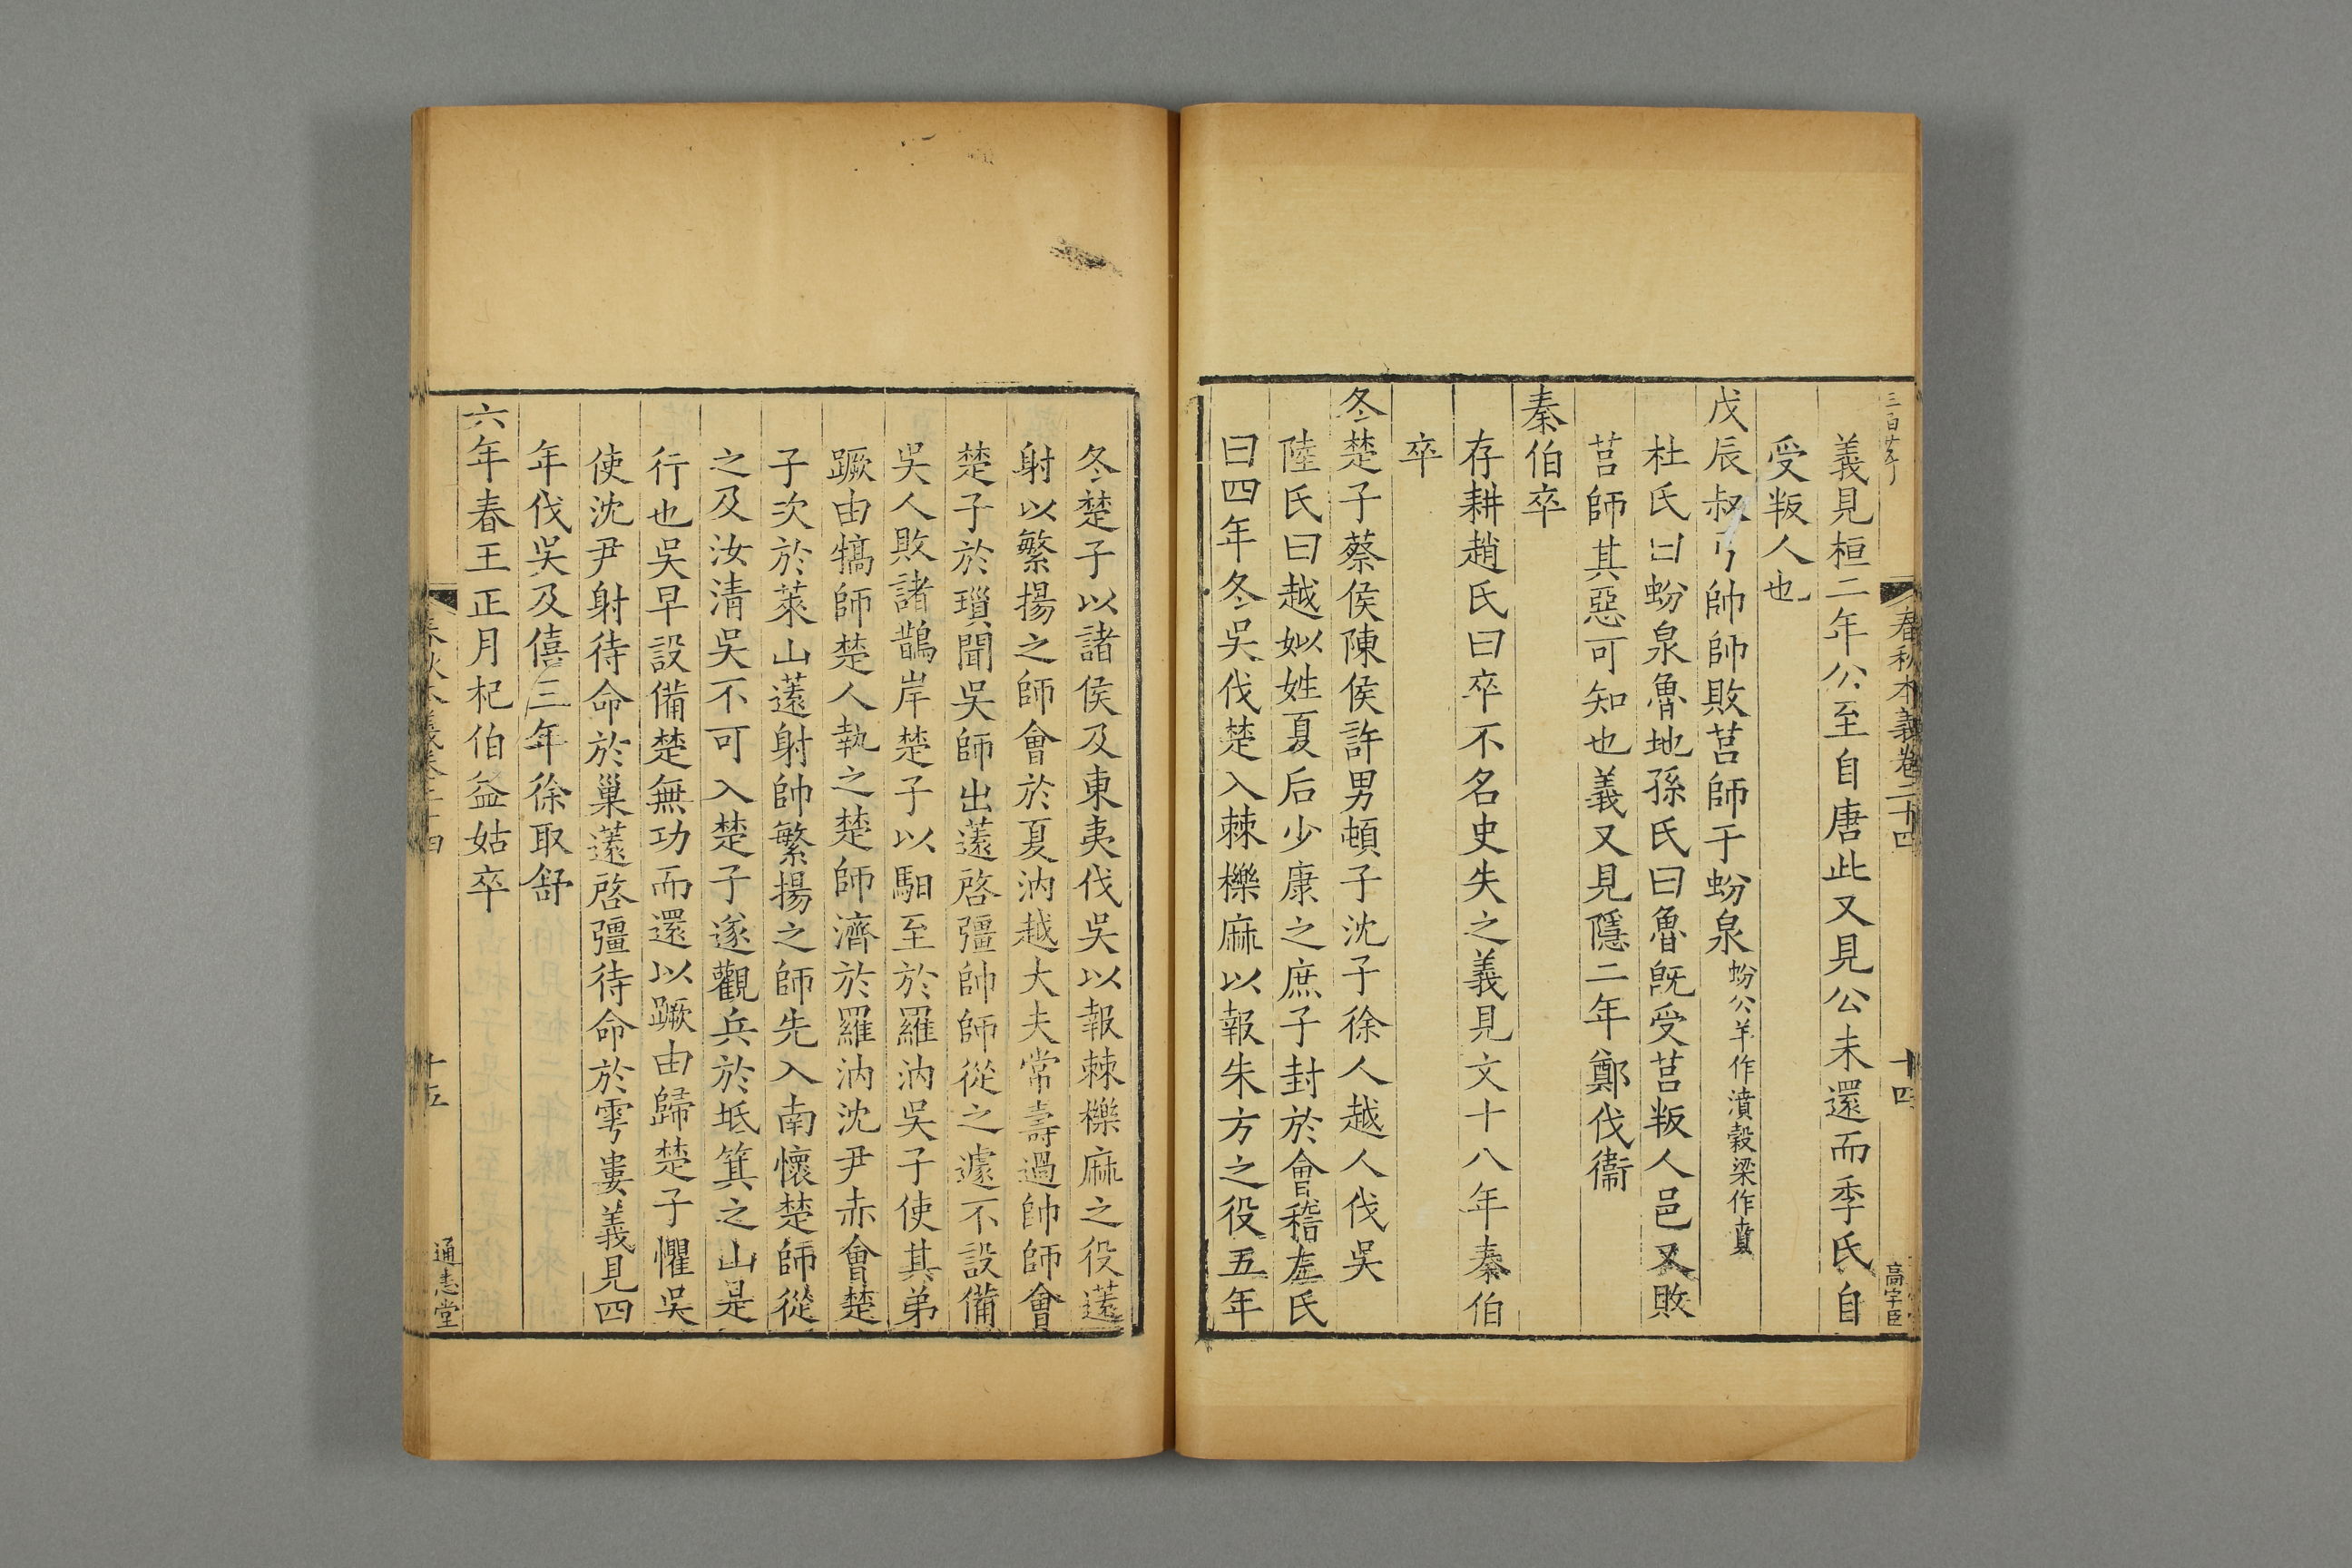 春秋本義卷二十四
十四
高宇臣
義見桓二年公至自唐此又見公未還而季氏自
受叛人也
戊辰叔弓帥師敗莒師于蚡泉蚡公羊作濆穀梁作賁
杜氏曰蚡泉魯地孫氏曰魯旣受莒叛人邑又敗
莒師其惡可知也義又見隱二年鄭伐衞
秦伯卒
存耕趙氏曰卒不名史失之義見文十八年秦伯
卒
冬楚子蔡侯陳侯許男頓子沈子徐人越人伐吳
陸氏曰越姒姓夏后少康之庶子封於會稽左氏
曰四年冬吳伐楚入棘櫟麻以報朱方之役五年
冬楚子以諸侯及東夷伐吳以報棘櫟麻之役薳
射以繁揚之師會於夏汭越大夫常壽過帥師會
楚子於瑣聞吳師出薳啓彊帥師從之遽不設備
吳人敗諸鵲岸楚子以馹至於羅汭吳子使其弟
蹶由犒師楚人執之楚師濟於羅汭沈尹赤會楚
子次於萊山薳射帥繁揚之師先入南懷楚師從
之及汝清吳不可入楚子遂觀兵於坻箕之山是
行也吳早設備楚無功而還以蹶由歸楚子懼吳
使沈尹射待命於巢薳啓彊待命於雩婁義見四
年伐吳及僖三年徐取舒
六年春王正月杞伯益姑卒
春秋本義卷二十四
十五
通志堂